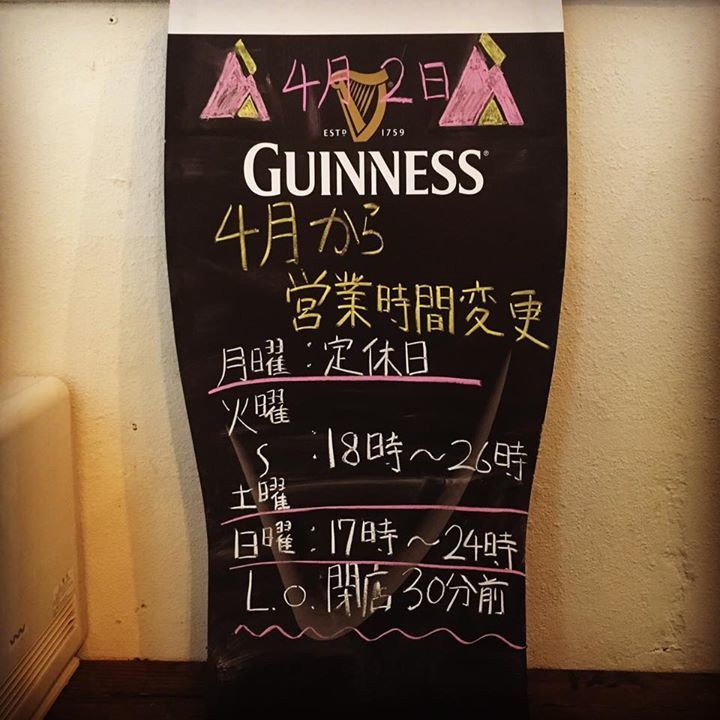 4月2日
ESTD 1759
GUINNESS
4月から
営業時間変更
月曜:定休日
火曜
〜:18時〜26時
土曜
日曜:17時〜24時
L.O.閉店30分前